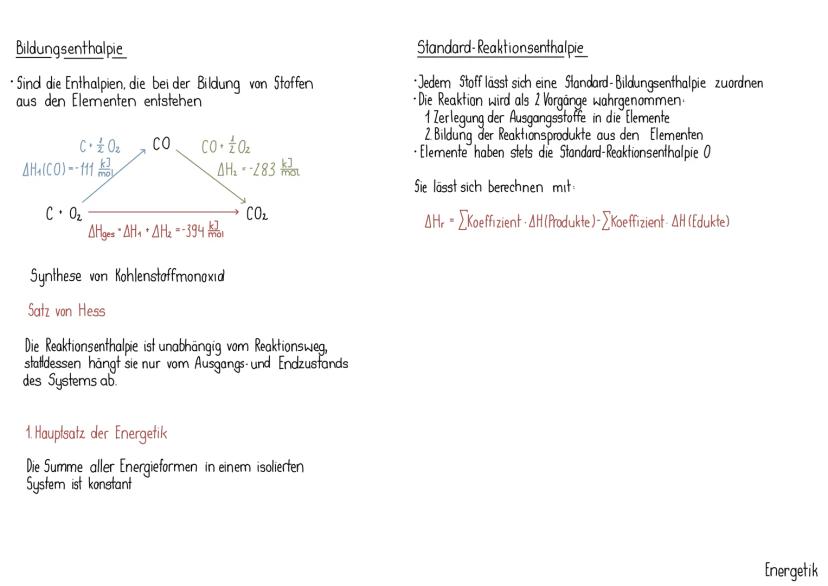 Bildungsenthalpie
· Sind die Enthalpien, die bei der Bildung von Stoffen
aus den Elementen entstehen
C + 1/2 O₂
CO
CO + 1/2 O₂
ΔH₁(CO) = -111 kJ/mol
ΔH₂ = -283 kJ/mol
C + O₂
CO₂
ΔHges = ΔH₁ + ΔH₂ = -394 kJ/mol
Synthese von Kohlenstoffmonoxid
Satz von Hess
Die Reaktionsenthalpie ist unabhängig vom Reaktionsweg,
stattdessen hängt sie nur vom Ausgangs- und Endzustands
des Systems ab.
1. Hauptsatz der Energetik
Die Summe aller Energieformen in einem isolierten
System ist konstant
Standard-Reaktionsenthalpie
· Jedem Stoff lässt sich eine Standard-Bildungsenthalpie zuordnen
· Die Reaktion wird als 2 Vorgänge wahrgenommen:
1. Zerlegung der Ausgangsstoffe in die Elemente
2. Bildung der Reaktionsprodukte aus den Elementen
· Elemente haben stets die Standard-Reaktionsenthalpie 0
Sie lässt sich berechnen mit:
ΔHr = ∑Koeffizient · ΔH(Produkte) - ∑Koeffizient · ΔH(Edukte)
Energetik